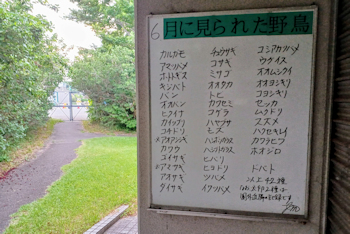 6月に見られた野鳥
カルガモ チュウサギ コシアカツバメ
アマツバメ コサギ ウグイス
ホトトギス ミサゴ オオムシクイ
キジバト オオタカ オオヨシキリ
バン トビ コヨシキリ
オオバン カワセミ セッカ
ヒクイナ コゲラ ムクドリ
カイツブリ ハヤブサ スズメ
コチドリ モズ ハクセキレイ
アオアシシギ ハシボソガラス カワラヒワ
カワウ ハシブトガラス ホオジロ
ゴイサギ ヒバリ
アマサギ ヒヨドリ ドバト
アオサギ ツバメ 以上42種
ダイサギ イワツバメ